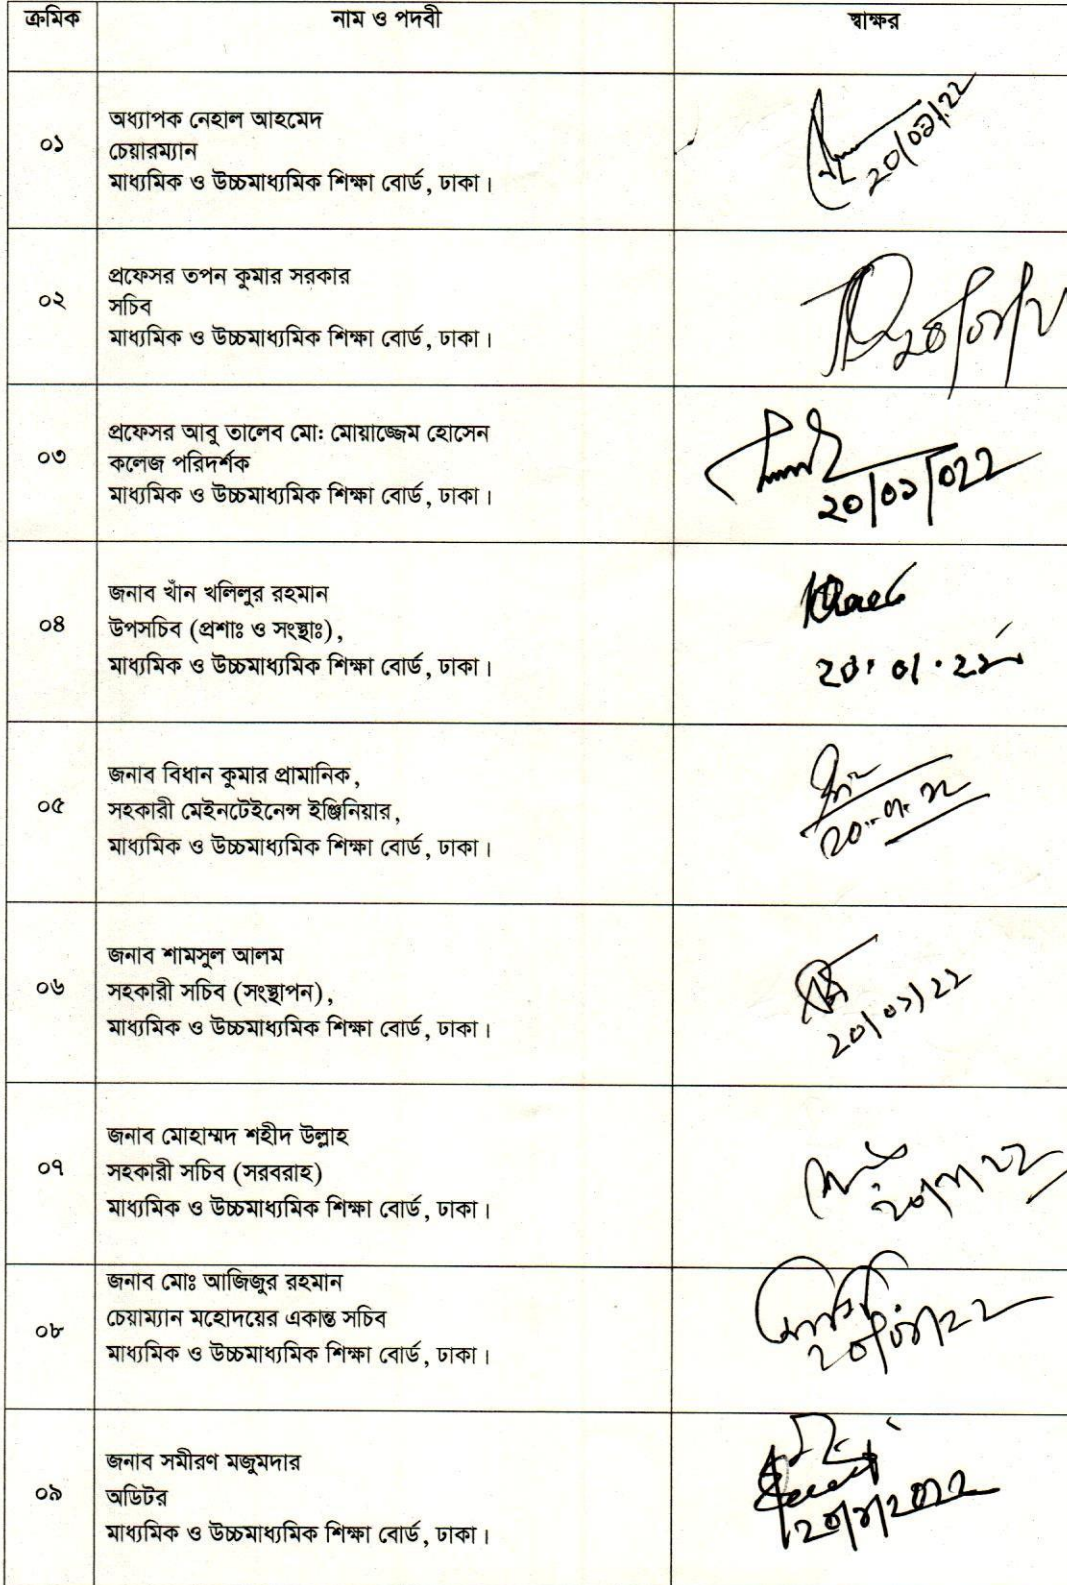 ক্রমিক নাম ও পদবী স্বাক্ষর
অধ্যাপক নেহাল আহমেদ
০১ চেয়ারম্যান
মাধ্যমিক ও উচ্চমাধ্যমিক শিক্ষা বোর্ড, ঢাকা।
২০/০১/২২
প্রফেসর তপন কুমার সরকার
০২ সচিব
মাধ্যমিক ও উচ্চমাধ্যমিক শিক্ষা বোর্ড, ঢাকা।
প্রফেসর আবু তালেব মো: মোয়াজ্জেম হোসেন
০৩ কলেজ পরিদর্শক
মাধ্যমিক ও উচ্চমাধ্যমিক শিক্ষা বোর্ড, ঢাকা।
২০/০১/০২২
জনাব খাঁন খলিলুর রহমান
০৪ উপসচিব (প্রশাঃ ও সংস্থাঃ),
মাধ্যমিক ও উচ্চমাধ্যমিক শিক্ষা বোর্ড, ঢাকা।
জনাব বিধান কুমার প্রামানিক,
০৫ সহকারী মেইনটেইনেন্স ইঞ্জিনিয়ার,
মাধ্যমিক ও উচ্চমাধ্যমিক শিক্ষা বোর্ড, ঢাকা।
জনাব শামসুল আলম
০৬ সহকারী সচিব (সংস্থাপন),
মাধ্যমিক ও উচ্চমাধ্যমিক শিক্ষা বোর্ড, ঢাকা।
২০/০১/২২
জনাব মোহাম্মদ শহীদ উল্লাহ
০৭ সহকারী সচিব (সরবরাহ)
মাধ্যমিক ও উচ্চমাধ্যমিক শিক্ষা বোর্ড, ঢাকা।
জনাব মোঃ আজিজুর রহমান
০৮ চেয়াম্যান মহোদয়ের একান্ত সচিব
মাধ্যমিক ও উচ্চমাধ্যমিক শিক্ষা বোর্ড, ঢাকা।
জনাব সমীরণ মজুমদার
০৯ অডিটর
মাধ্যমিক ও উচ্চমাধ্যমিক শিক্ষা বোর্ড, ঢাকা।